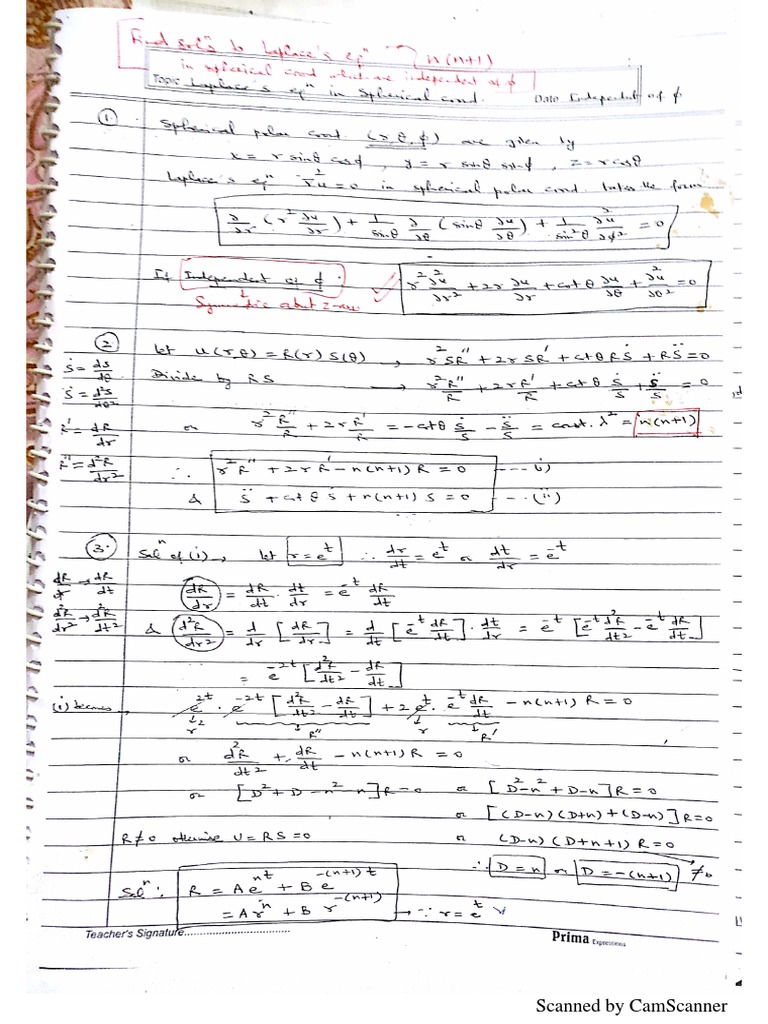 Find solⁿ to Laplace's eqⁿ → n(n+1)
in spherical coord what are independent of φ
Topic Laplace's eqⁿ in spherical coord. Date Independent of φ
① Spherical polar coord. (r, θ, φ) are given by
x = r sinθ cosφ, y = r sinθ sinφ, z = r cosθ
Laplace's eqⁿ ∇²u = 0 in spherical polar coord. takes the form
∂/∂r (r² ∂u/∂r) + 1/sinθ ∂/∂θ (sinθ ∂u/∂θ) + 1/sin²θ ∂²u/∂φ² = 0
If Independent of φ. ✓ r² ∂²u/∂r² + 2r ∂u/∂r + cotθ ∂u/∂θ + ∂²u/∂θ² = 0
↓
Symmetric about z-axis
② Let u(r, θ) = R(r) S(θ) → r² S R'' + 2r S R' + cotθ R Ṡ + R S̈ = 0
Ṡ = dS/dθ
Divide by RS → r² R''/R + 2r R'/R + cotθ Ṡ/S + S̈/S = 0
S̈ = d²S/dθ²
R' = dR/dr
or r² R''/R + 2r R'/R = -cotθ Ṡ/S - S̈/S = const. λ² = n(n+1)
R'' = d²R/dr²
∴ r² R'' + 2r R' - n(n+1) R = 0 ---- i)
& S̈ + cotθ Ṡ + n(n+1) S = 0 --- (ii)
③. Solⁿ of (i) → let r = eᵗ ∴ dr/dt = eᵗ or dt/dr = e⁻ᵗ
dR/dr → dR/dt
dR/dr = dR/dt · dt/dr = e⁻ᵗ dR/dt
d²R/dr² → d²R/dt²
& d²R/dr² = d/dr [dR/dr] = d/dt [e⁻ᵗ dR/dt] · dt/dr = e⁻ᵗ [e⁻ᵗ d²R/dt² - e⁻ᵗ dR/dt]
= e⁻²ᵗ [d²R/dt² - dR/dt]
(i) becomes → e²ᵗ · e⁻²ᵗ [d²R/dt² - dR/dt] + 2 eᵗ · e⁻ᵗ dR/dt - n(n+1) R = 0
↓ r² ↓ R'' ↓ r ↓ R'
or d²R/dt² + dR/dt - n(n+1) R = 0
or [D² + D - n² - n] R = 0 or [D² - n² + D - n] R = 0
or [(D-n)(D+n) + (D-n)] R = 0
R ≠ 0 otherwise U = RS = 0 or (D-n)(D+n+1) R = 0
∴ D = n or D = -(n+1) ≠0
Solⁿ: R = A eⁿᵗ + B e^-(n+1)t
= A rⁿ + B r^-(n+1) → ∵ r = eᵗ
Teacher's Signature..................................
Prima Expressions
Scanned by CamScanner